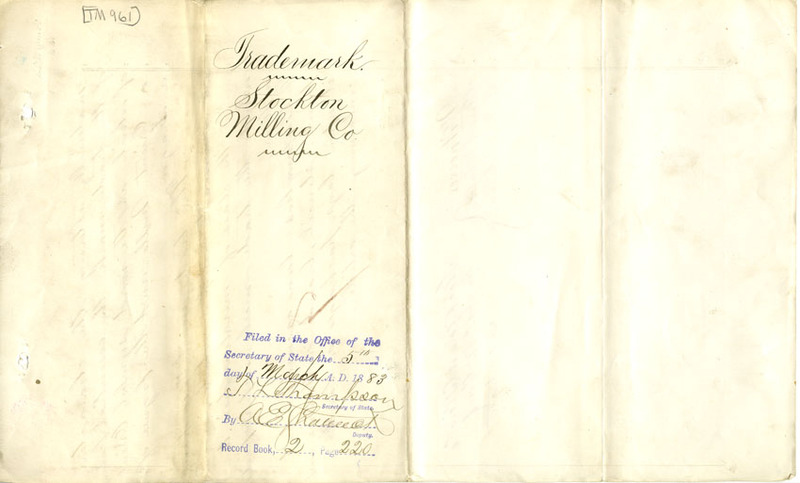 [TM 961]
Trademark.
Stockton
Milling Co.
Filed in the Office of the
Secretary of State the 5th
day of March A.D. 1883
Thompson
Secretary of State
By A E
Deputy.
Record Book, 2, Page 220